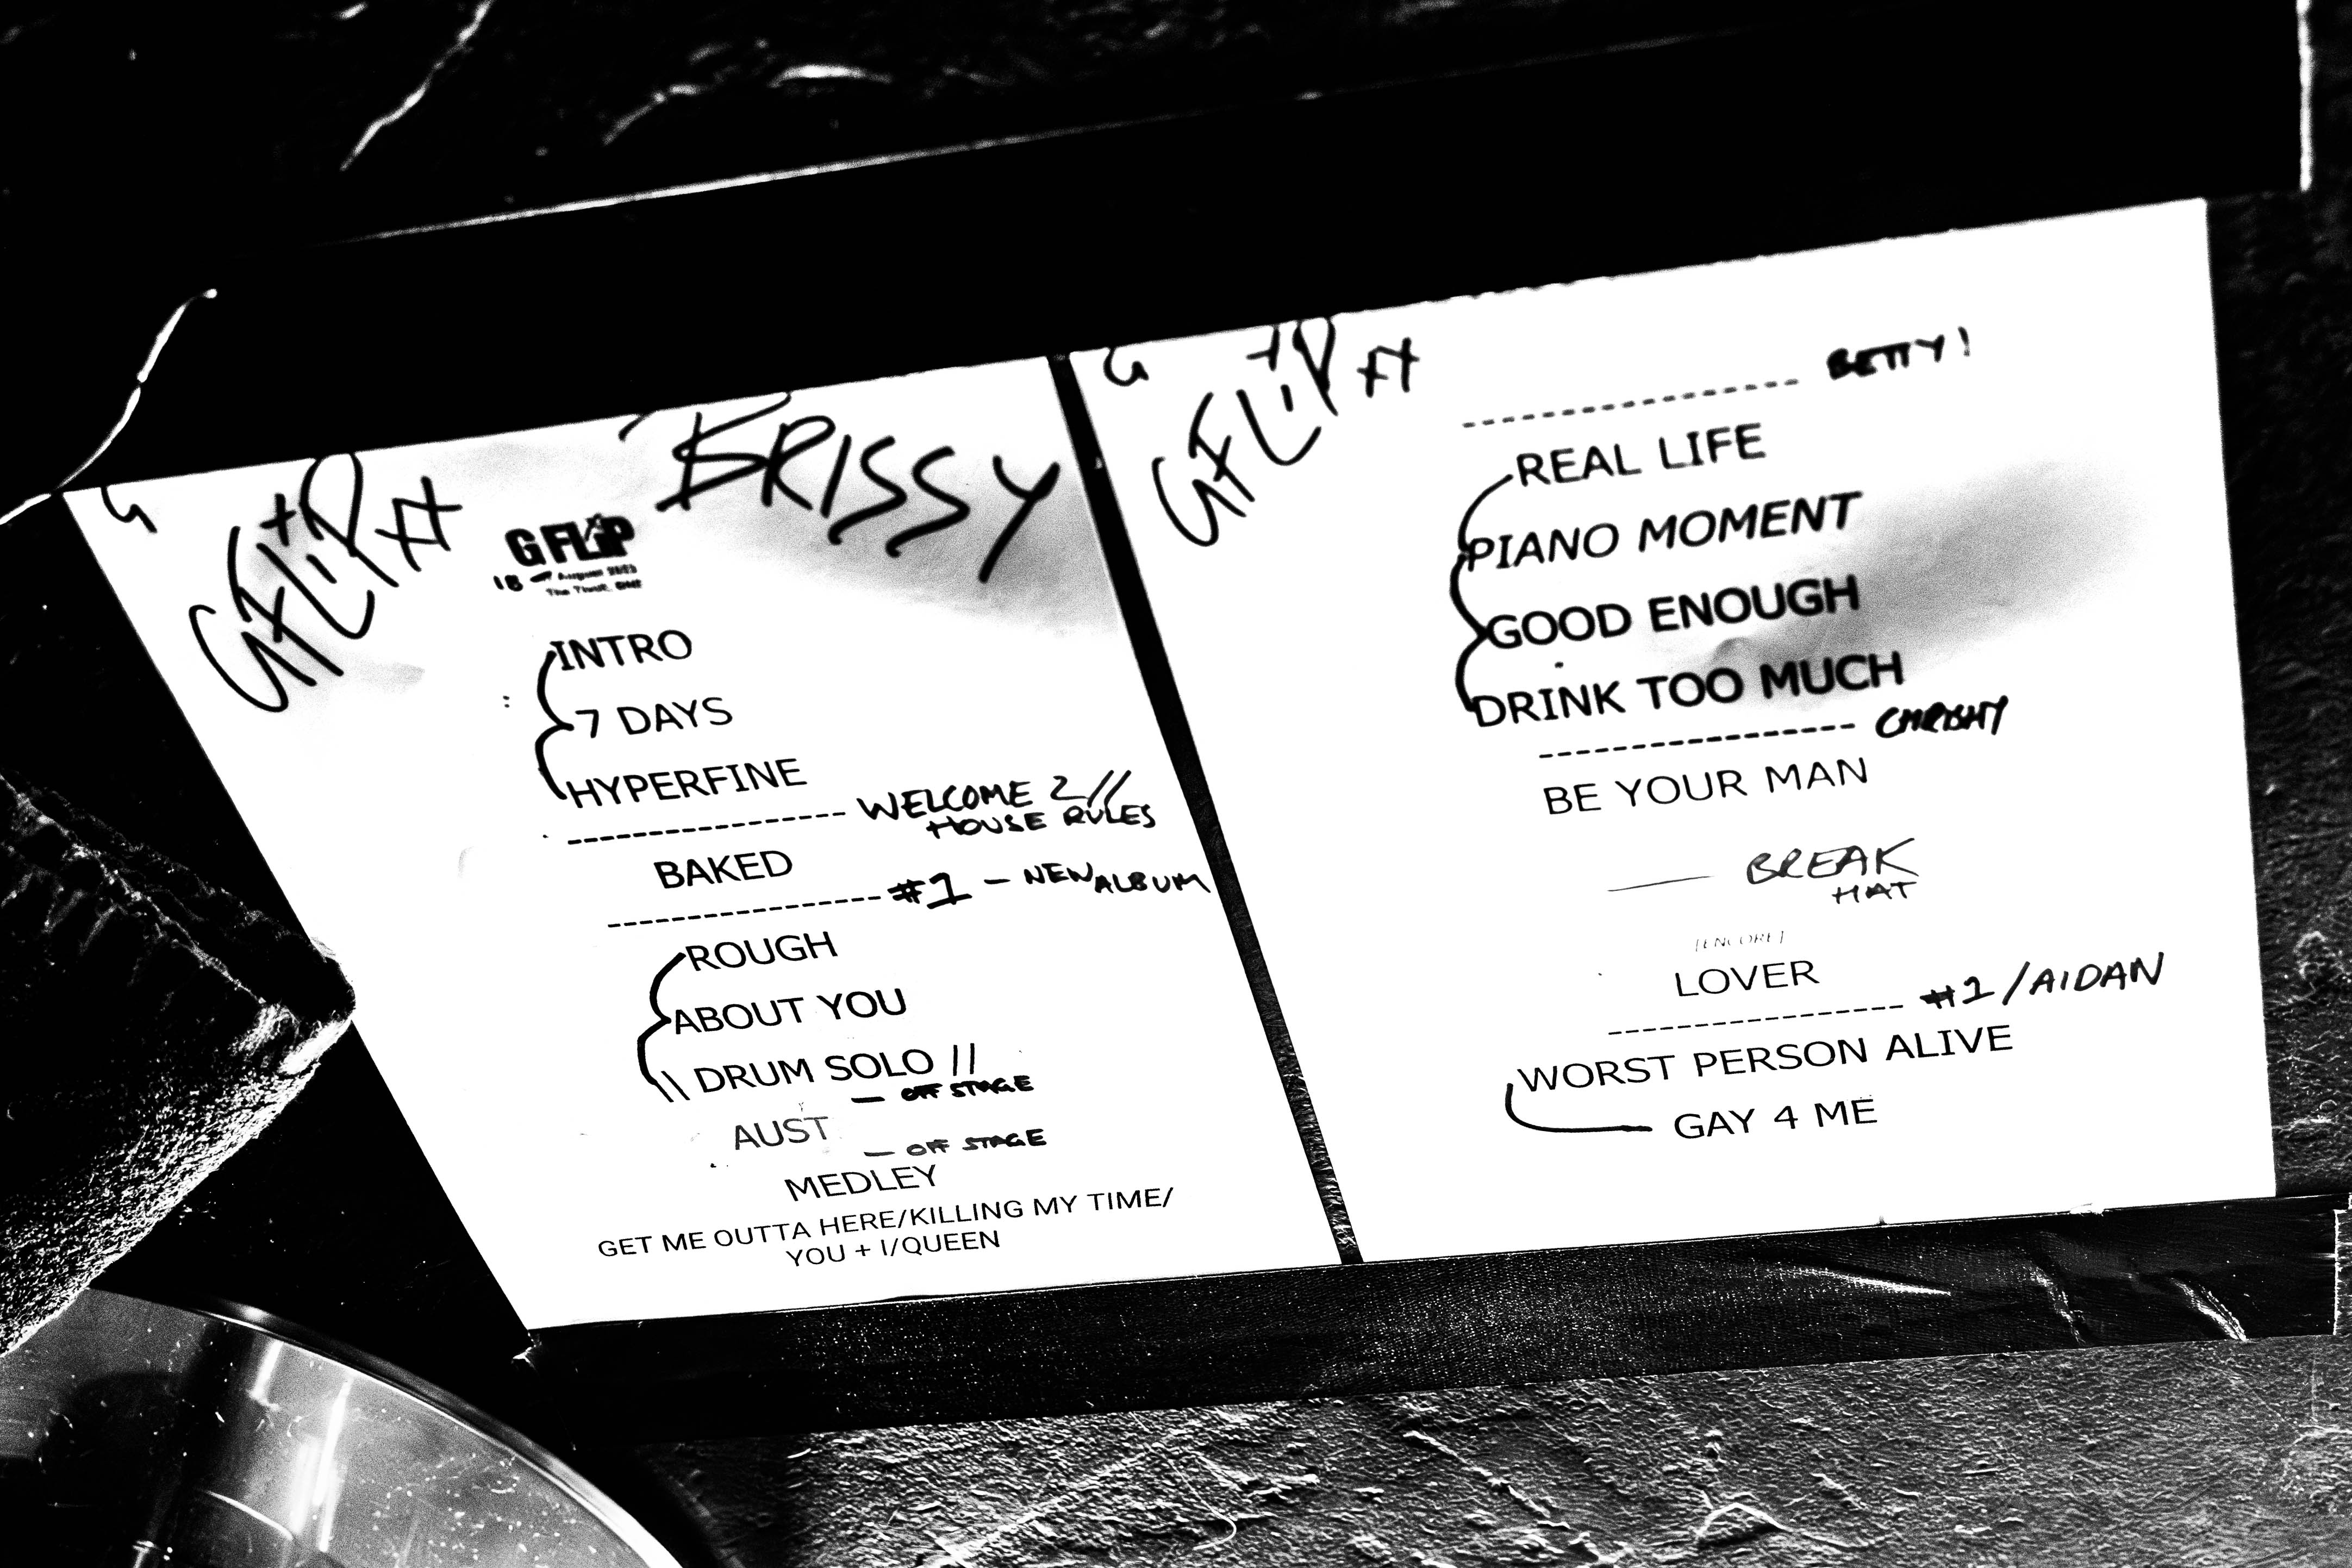 G
G FLIP xx
BRISSY
G FLIP
18 August 2023
The Tivoli, BNE
INTRO
7 DAYS
HYPERFINE
---------------- WELCOME 2 //
HOUSE RULES
BAKED
---------------- #1 - NEW ALBUM
ROUGH
ABOUT YOU
\\ DRUM SOLO //
- OFF STAGE
AUST
- OFF STAGE
MEDLEY
GET ME OUTTA HERE/KILLING MY TIME/
YOU + I/QUEEN
G
G FLIP xx
---------------- BETTY!
REAL LIFE
PIANO MOMENT
GOOD ENOUGH
DRINK TOO MUCH
---------------- CHRISHY
BE YOUR MAN
— BREAK
HAT
[ENCORE]
LOVER
---------------- #1 / AIDAN
WORST PERSON ALIVE
GAY 4 ME